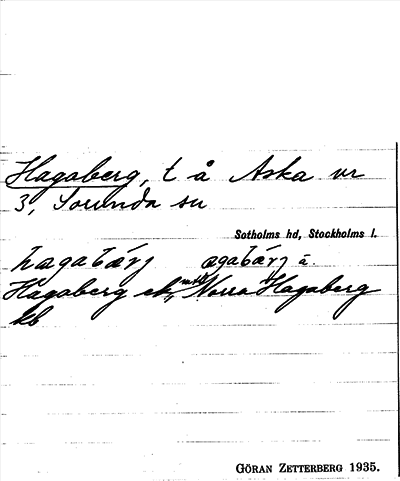 Hagaberg, t å Aska nr
3, Sorunda sn
Sotholms hd, Stockholms l.
hagabärj agabärj ä.
Hagaberg ek, Norra Hagaberg
kb
GÖRAN ZETTERBERG 1935.